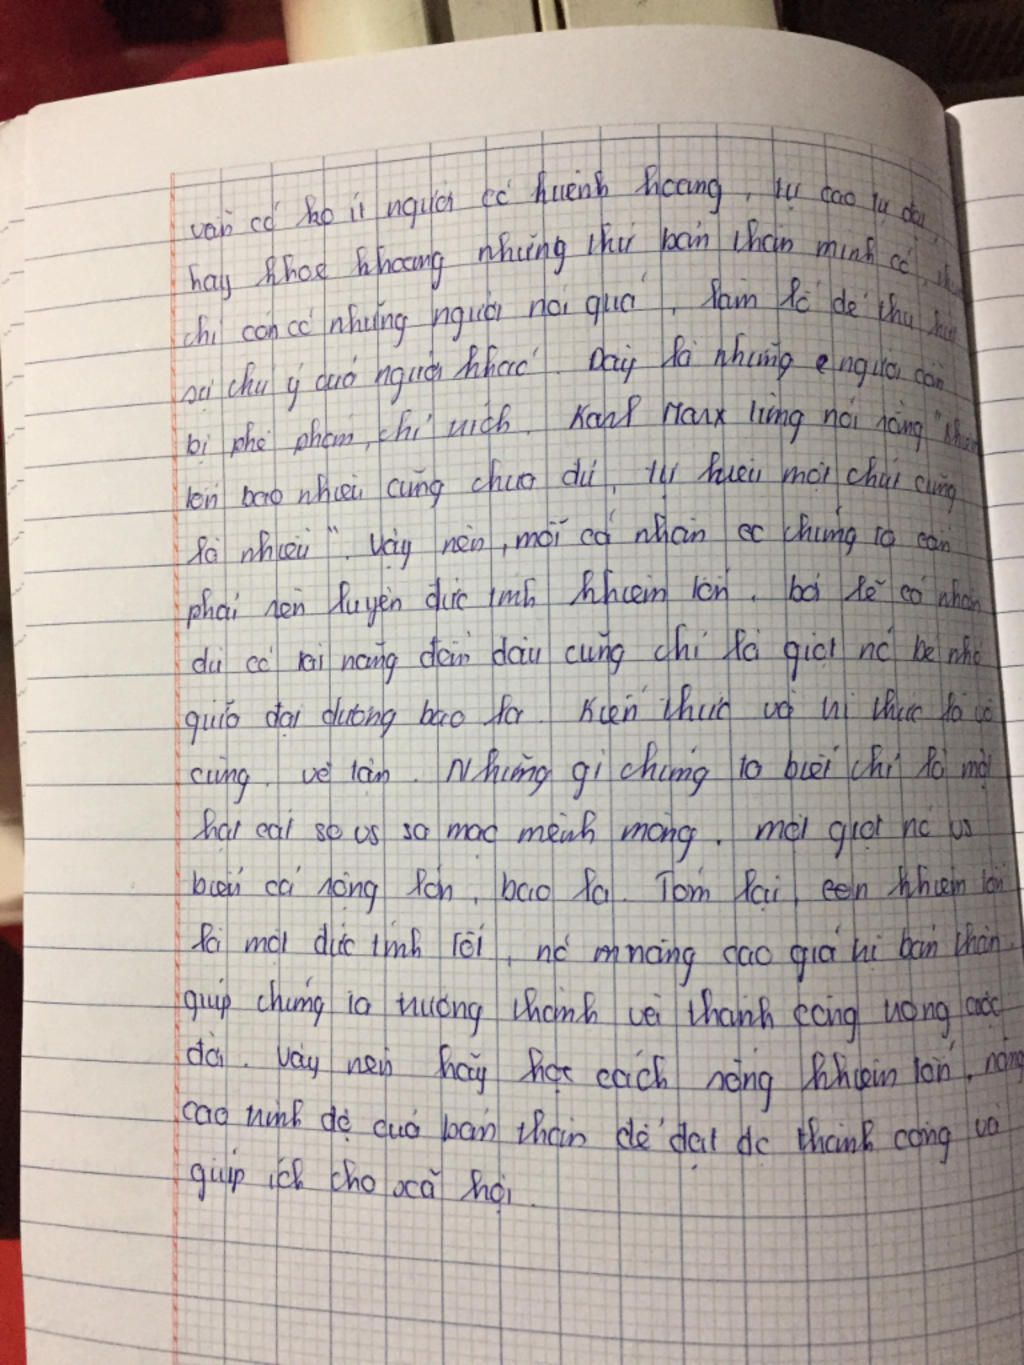 vẫn có ko ít người có huênh hoang, tự cao tự đại,
hay khoe khoang những thứ bản thân mình có,
chí còn có những người nói quá, làm lố để thu hút
sự chú ý của người khác. Đây là những người cần
bị phê phán, chỉ trích. Karl Marx từng nói rằng "khiêm
tốn bao nhiêu cũng chưa đủ, tự kiêu một chút cũng
là nhiều". Vậy nên, mỗi cá nhân chúng ta cần
phải rèn luyện đức tính khiêm tốn. bởi lẽ cá nhân
dù có tài năng đến đâu cũng chỉ là giọt nc bé nhỏ
giữa đại dương bao la. Kiến thức và tri thức là vô
cùng, vô tận. Những gì chúng ta biết chỉ là một
hạt cát so vs sa mạc mênh mông, một giọt nc vs
biển cả rộng lớn, bao la. Tóm lại, khiêm tốn
là một đức tính tốt, nó nâng cao giá trị bản thân
giúp chúng ta trưởng thành và thành công trong cuộc
đời. Vậy nên hãy học cách sống khiêm tốn, nâng
cao trình độ của bản thân để đạt đc thành công và
giúp ích cho xã hội.